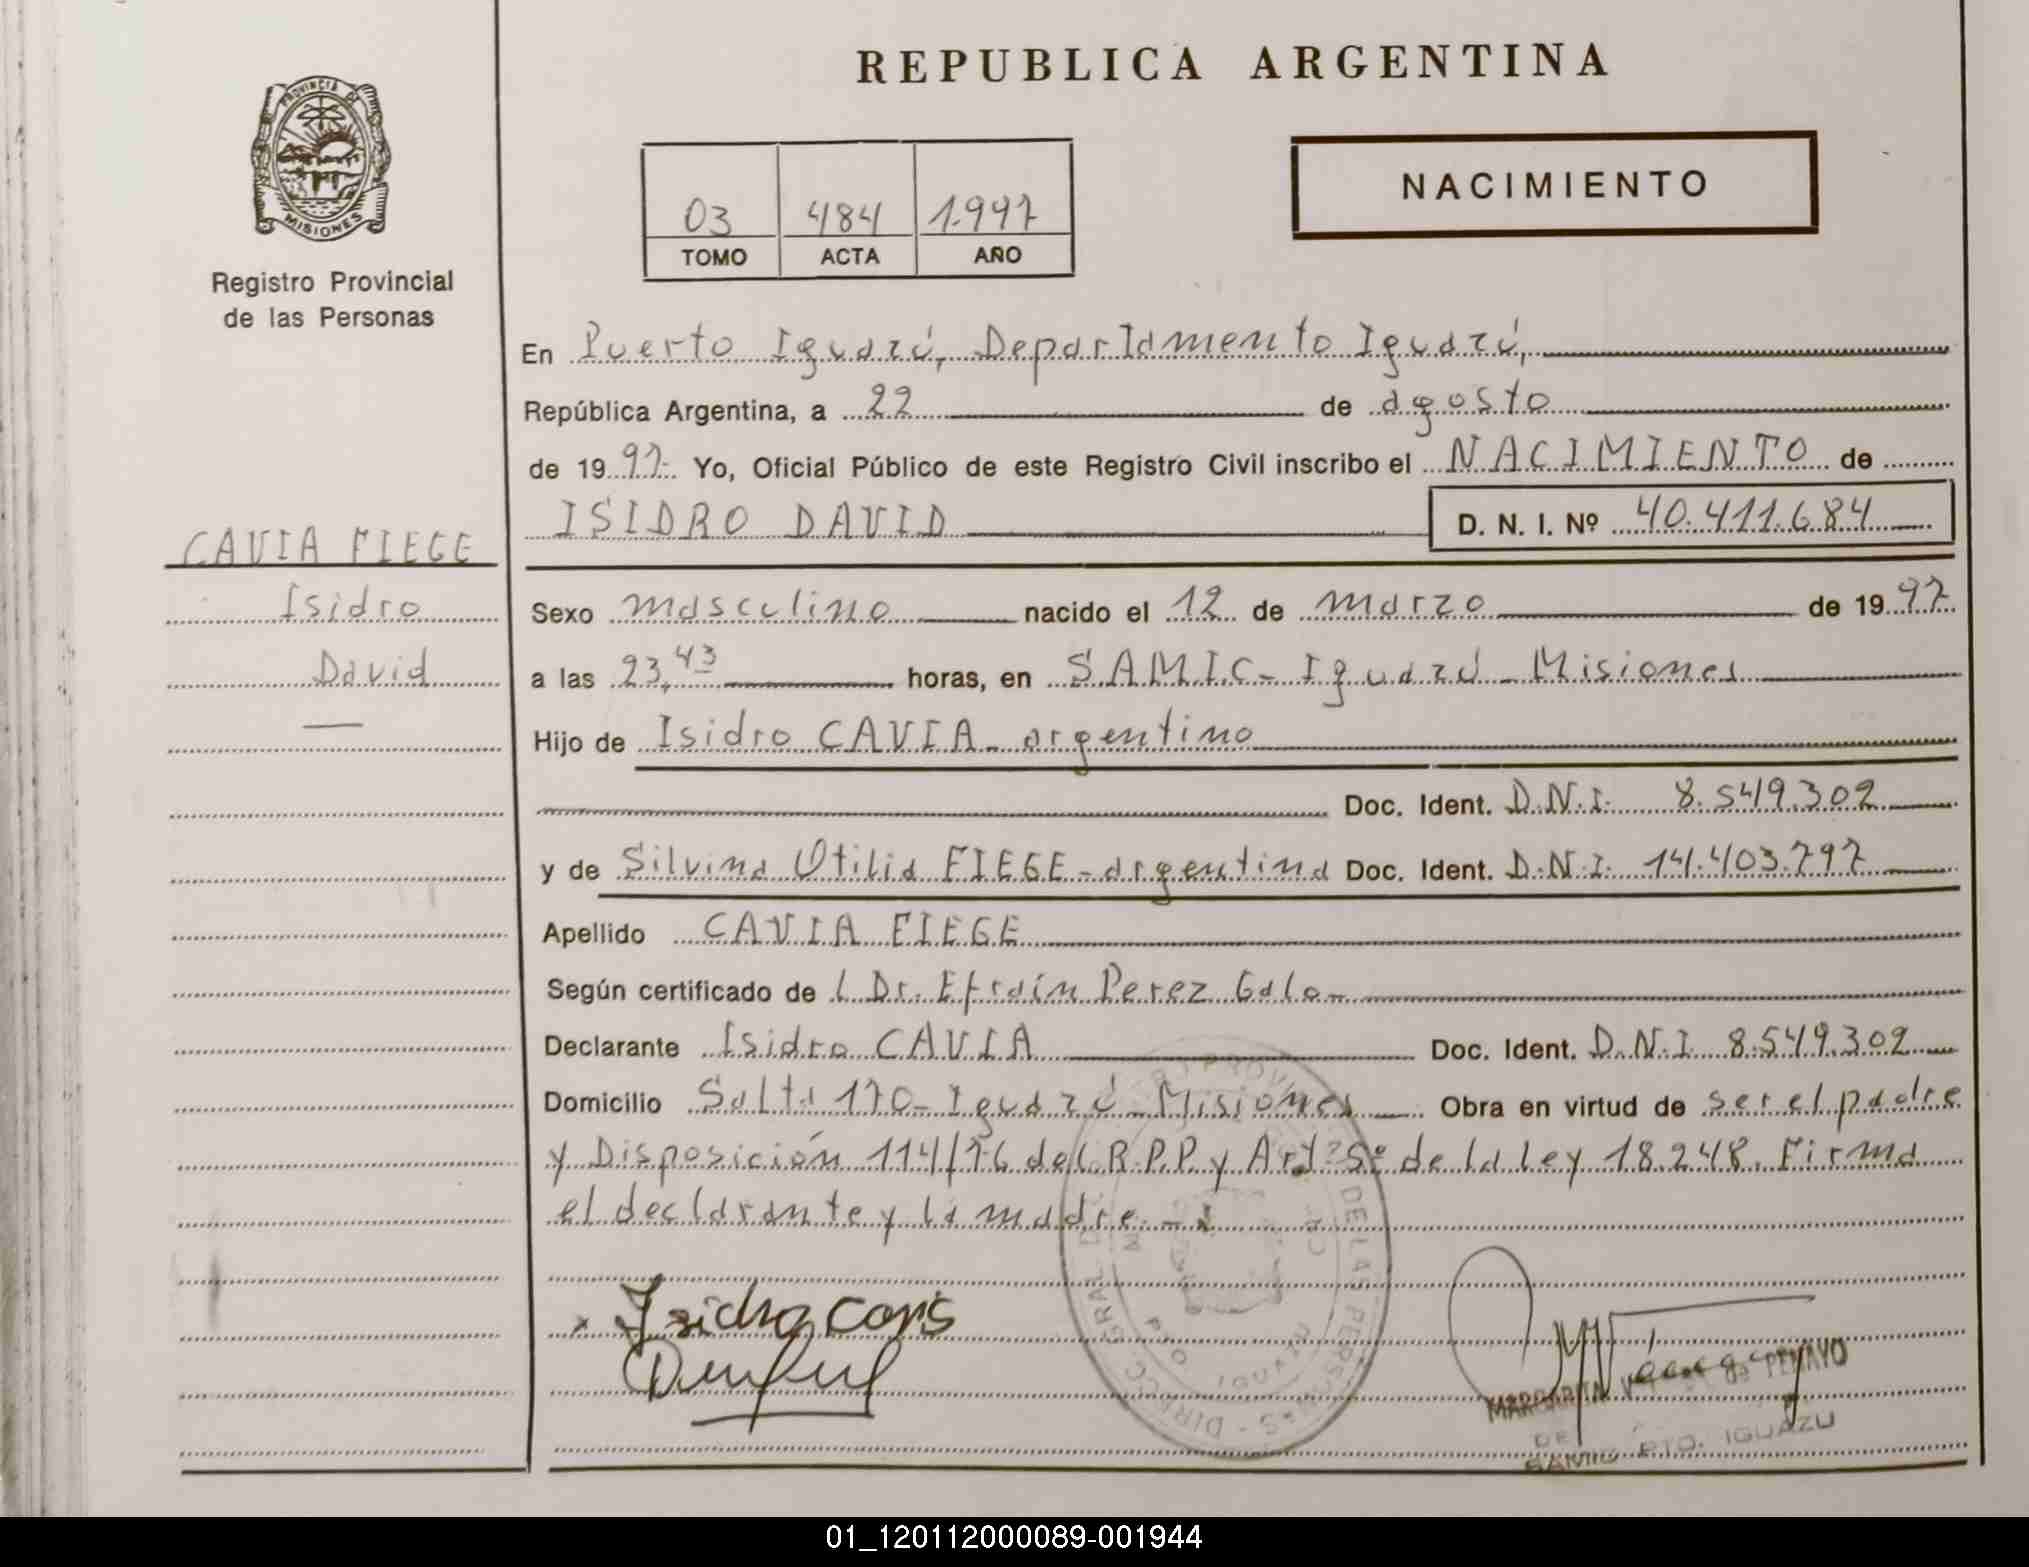 REPUBLICA ARGENTINA
PROVINCIA DE
MISIONES
Registro Provincial
de las Personas
03 484 1.997
TOMO ACTA AÑO
NACIMIENTO
En Puerto Iguazú, Departamento Iguazú,
República Argentina, a 22 de agosto
de 1997. Yo, Oficial Público de este Registro Civil inscribo el NACIMIENTO de
ISIDRO DAVID D. N. I. Nº 40.411.684
CAVIA FIEGE
Isidro
David
Sexo masculino nacido el 12 de marzo de 1997
a las 23,43 horas, en SAMIC- Iguazú - Misiones
Hijo de Isidro CAVIA - argentino
Doc. Ident. D.N.I. 8.549.302
y de Silvina Otilia FIEGE - argentina Doc. Ident. D.N.I. 14.403.797
Apellido CAVIA FIEGE
Según certificado de l Dr. Efraín Perez Galo-
Declarante Isidro CAVIA Doc. Ident. D.N.I 8.549.302
Domicilio Salta 170- Iguazú - Misiones Obra en virtud de ser el padre
y Disposición 114/76 del R.P.P y Art. 5º de la Ley 18.248. Firma
el declarante y la madre.-
Isidro
MARGARITA DE PENAYO
SAMIC PTO. IGUAZU
01_120112000089-001944